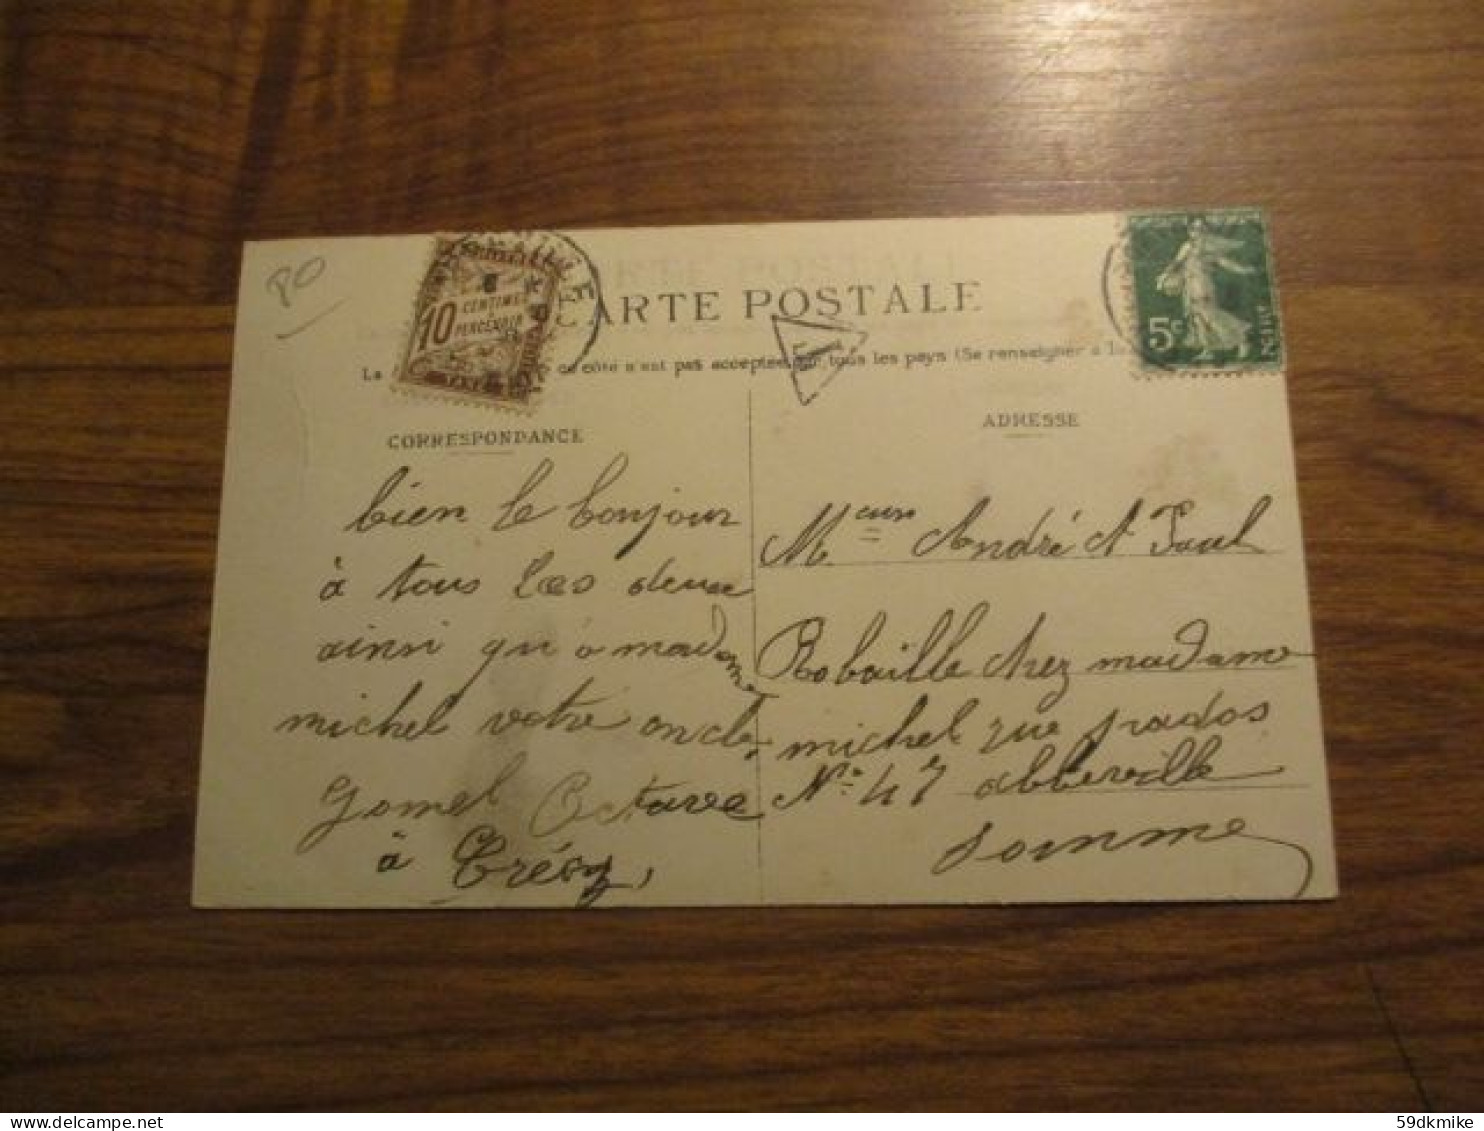 PO
10 CENTIMES A PERCEVOIR
CARTE POSTALE
5c
T
La ce côté n'est pas acceptée par tous les pays (Se renseigner à la
CORRESPONDANCE
ADRESSE
bien le bonjour
à tous les deux
ainsi qu'a madame
michel votre oncle
Octave
à Crécy,
Mrs André et Paul
Robaille chez madame
michel rue prados
No 47 abbeville
Somme
59dkmike